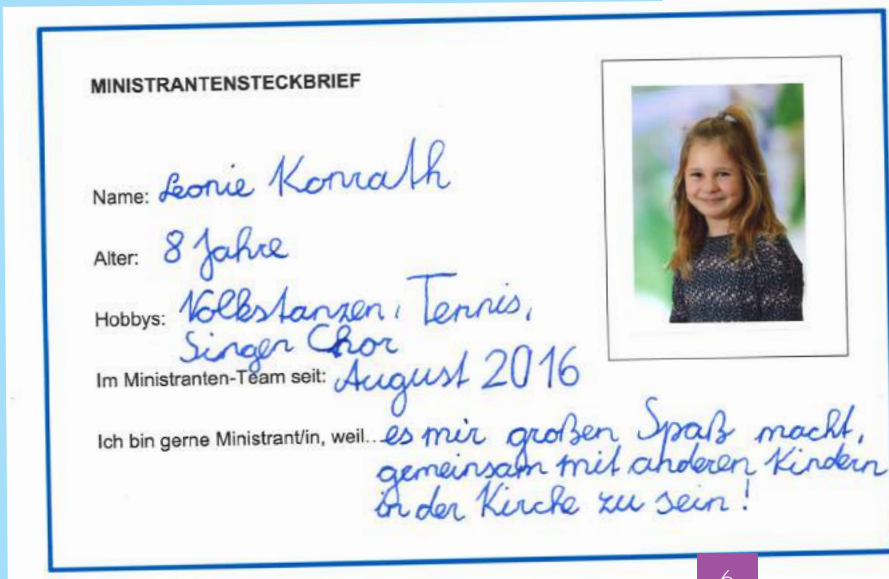 MINISTRANTENSTECKBRIEF
Name: Leonie Konrath
Alter: 8 Jahre
Hobbys: Volkstanzen, Tennis,
Singen Chor
Im Ministranten-Team seit: August 2016
Ich bin gerne Ministrant/in, weil... es mir großen Spaß macht,
gemeinsam mit anderen Kindern
in der Kirche zu sein!
6